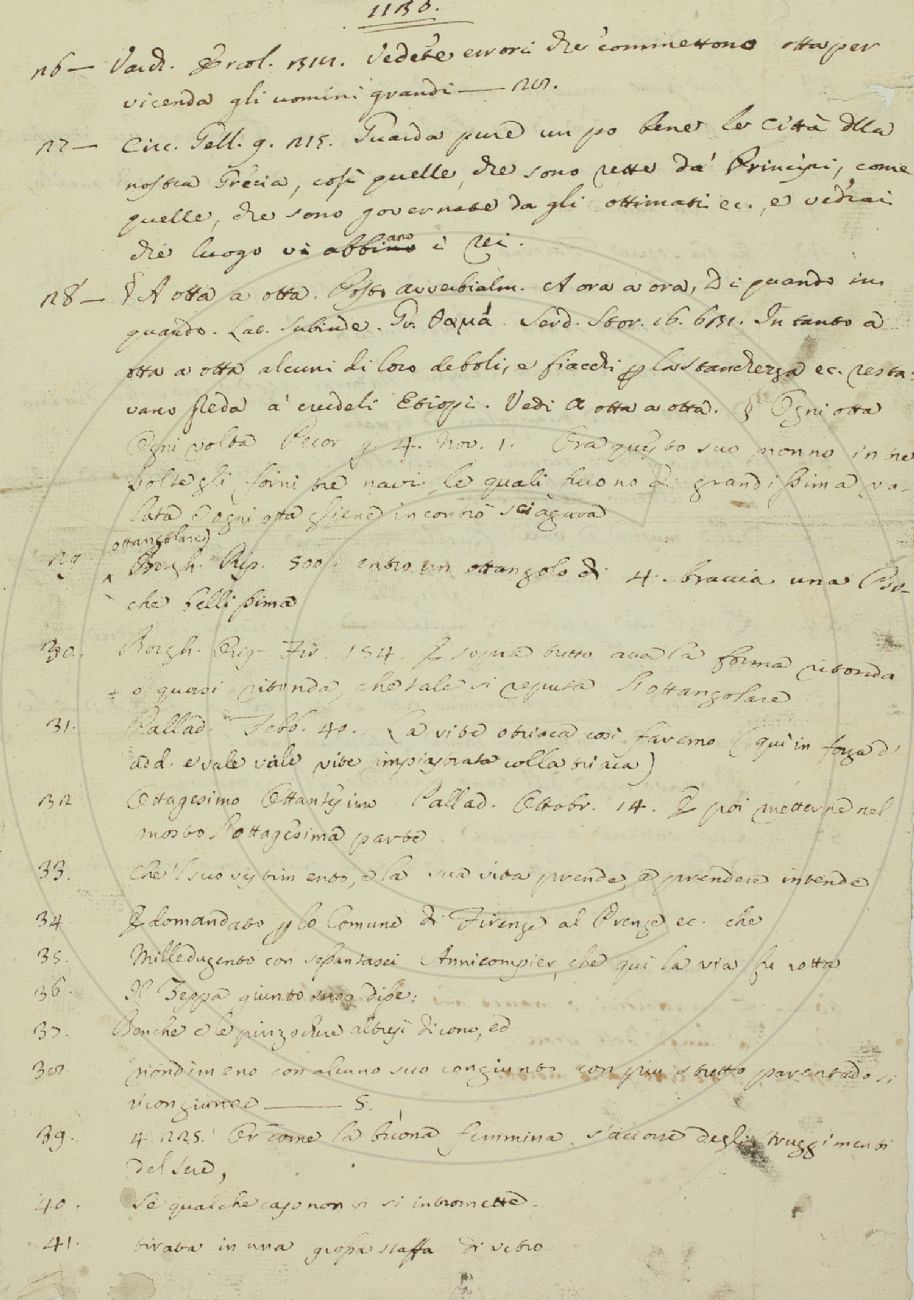 1130.
26 — Varch. Ercol. 131. Vedete errori che commettono otta per
vicenda gli uomini grandi — 28.
27 — Circ. Gell. g. 215. Guarda pure un po bene le Città della
nostra Grecia, così quelle, che sono rette da' Principi, come
quelle, che sono governate da gli ottimati ec., e vedrai
che luogo vi abbiano i rei.
28 — § A otta a otta. Posto avverbialm. A ora a ora, Di quando in
quando. Lat. Subinde. Gr. θαμά. Serd. Stor. 16. 631. In tanto a
otta a otta alcuni di loro deboli, e fiacchi p la stanchezza ec. resta-
vano preda a' crudeli Etiopi. Vedi A otta a otta. § Ogni otta
Ogni volta Pecor g 4. nov. 1. Era questo suo nonno in tre
volte gli forni tre navi, le quali furono di grandissima va-
luta e ogni otta gliene incontrò sciagura
ottangolare
29. Borgh. Rip. 500. entro un ottangolo di 4. braccia una
che bellissima
30. Borgh. Orig. Fir. 154. E sopra tutto ava la forma ritonda
o quasi ritonda, che tale si reputa l'ottangolare
31. Pallad. Febb. 40. La vite otriaca così faremo (qui in forza d'
add. e vale vite impiastrata colla triaca)
32 Ottagesimo Ottantesimo Pallad. Ottobr. 14. E poi metterne nel
mosto l'ottagesima parte
33. che 'l suo vestimento, e la sua vita prende, e prendere intende
34 E domandato p lo Comune di Firenze al Prenze ec. che
35. Milledugento con sessantasei Anni compier, che qui la via fu rotta
36. Il Zeppa giunto suso disse:
37. Benche e le pinzochere altresi dicono, ed
38. nondimeno con alcuno suo congiunto con piu stretto parentado si
ricongiunse — S.
39. 4. 225. Or come la buona femmina s'accorse degli struggimenti
del Sere,
40. se qualche caso non vi si intromette.
41. tirata in una grossa staffa di vetro